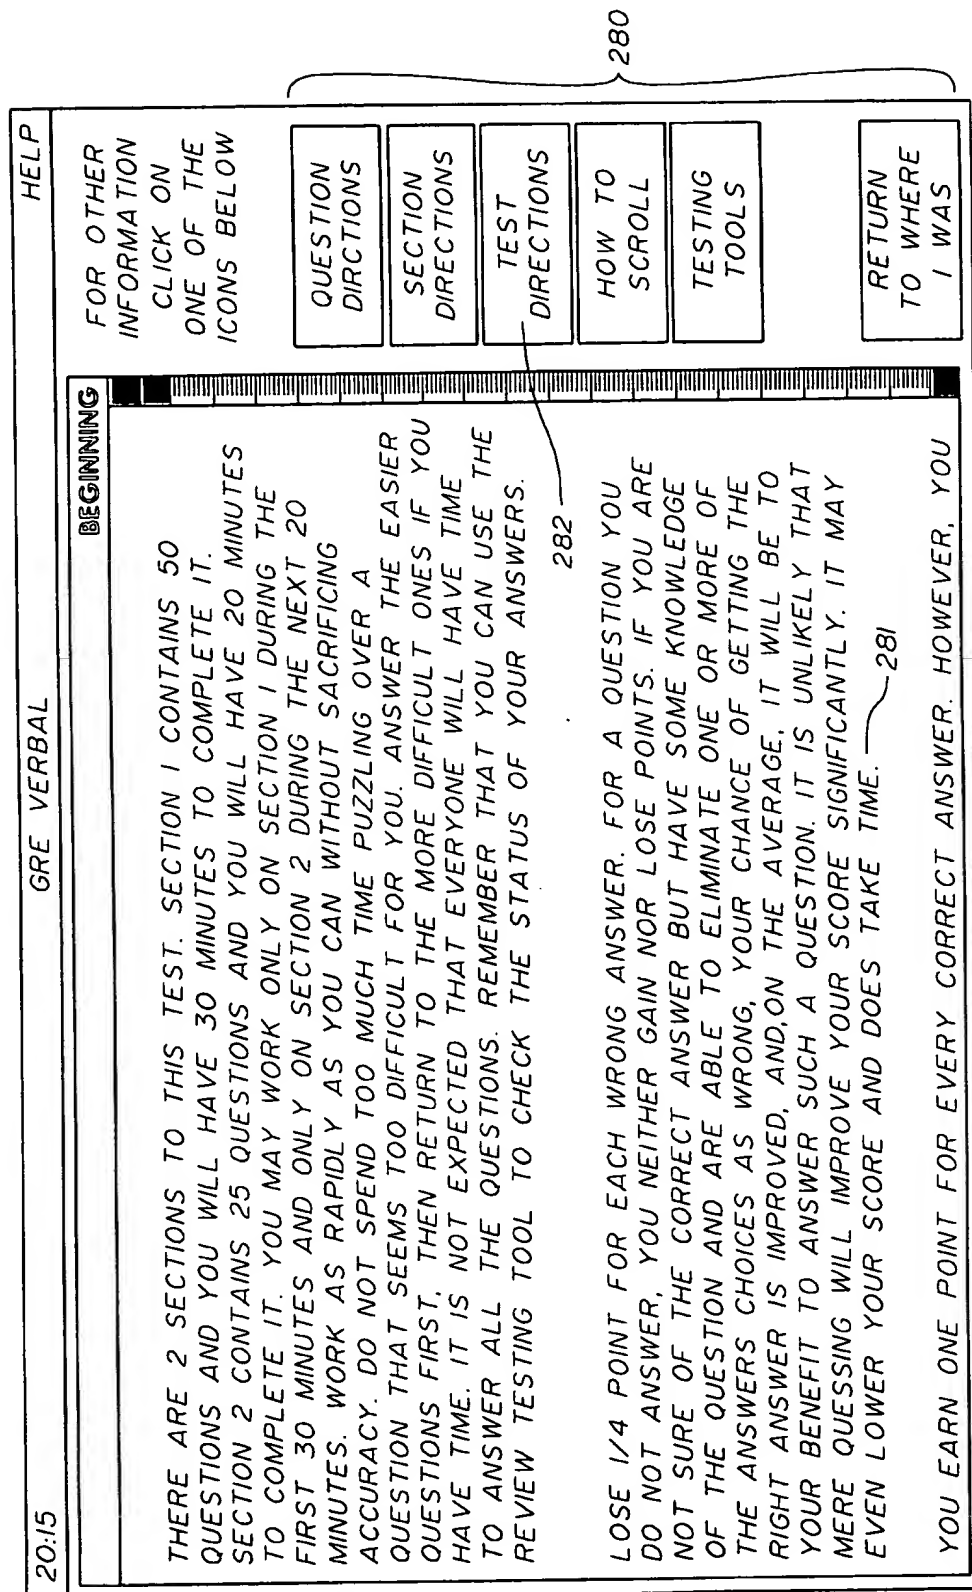 20:15
GRE VERBAL
HELP
BEGINNING
THERE ARE 2 SECTIONS TO THIS TEST. SECTION I CONTAINS 50
QUESTIONS AND YOU WILL HAVE 30 MINUTES TO COMPLETE IT.
SECTION 2 CONTAINS 25 QUESTIONS AND YOU WILL HAVE 20 MINUTES
TO COMPLETE IT. YOU MAY WORK ONLY ON SECTION I DURING THE
FIRST 30 MINUTES AND ONLY ON SECTION 2 DURING THE NEXT 20
MINUTES. WORK AS RAPIDLY AS YOU CAN WITHOUT SACRIFICING
ACCURACY. DO NOT SPEND TOO MUCH TIME PUZZLING OVER A
QUESTION THAT SEEMS TOO DIFFICULT FOR YOU. ANSWER THE EASIER
QUESTIONS FIRST, THEN RETURN TO THE MORE DIFFICULT ONES IF YOU
HAVE TIME. IT IS NOT EXPECTED THAT EVERYONE WILL HAVE TIME
TO ANSWER ALL THE QUESTIONS. REMEMBER THAT YOU CAN USE THE
REVIEW TESTING TOOL TO CHECK THE STATUS OF YOUR ANSWERS.
282
LOSE 1/4 POINT FOR EACH WRONG ANSWER. FOR A QUESTION YOU
DO NOT ANSWER, YOU NEITHER GAIN NOR LOSE POINTS. IF YOU ARE
NOT SURE OF THE CORRECT ANSWER BUT HAVE SOME KNOWLEDGE
OF THE QUESTION AND ARE ABLE TO ELIMINATE ONE OR MORE OF
THE ANSWERS CHOICES AS WRONG, YOUR CHANCE OF GETTING THE
RIGHT ANSWER IS IMPROVED, AND,ON THE AVERAGE, IT WILL BE TO
YOUR BENEFIT TO ANSWER SUCH A QUESTION. IT IS UNLIKELY THAT
MERE QUESSING WILL IMPROVE YOUR SCORE SIGNIFICANTLY. IT MAY
EVEN LOWER YOUR SCORE AND DOES TAKE TIME.
281
YOU EARN ONE POINT FOR EVERY CORRECT ANSWER. HOWEVER, YOU
FOR OTHER
INFORMATION
CLICK ON
ONE OF THE
ICONS BELOW
QUESTION
DIRCTIONS
SECTION
DIRECTIONS
TEST
DIRECTIONS
HOW TO
SCROLL
TESTING
TOOLS
RETURN
TO WHERE
I WAS
280